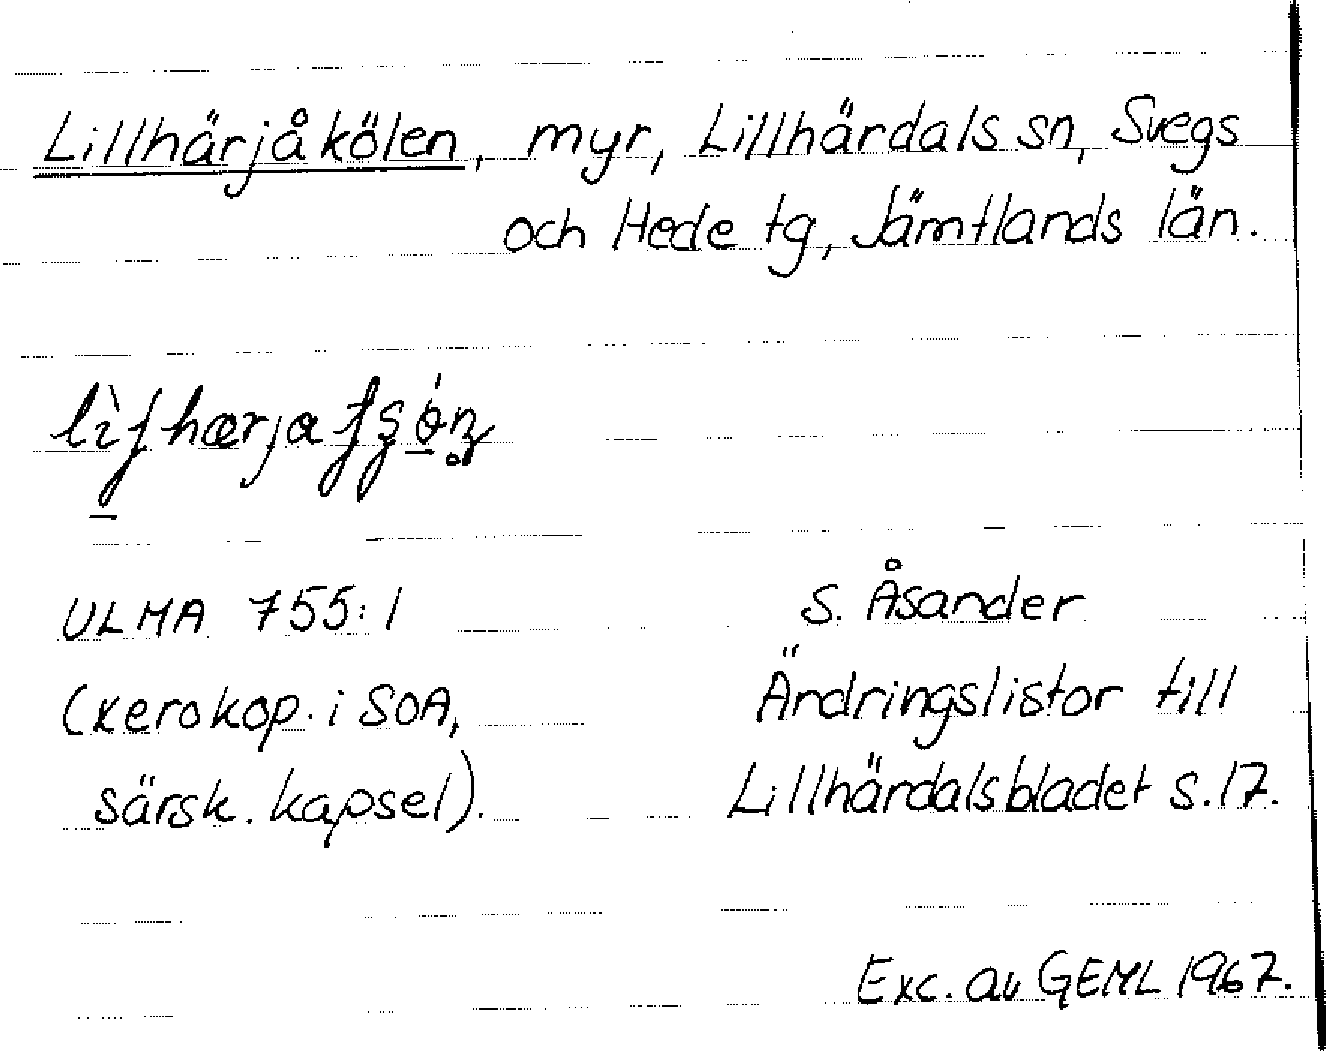 Lillhärjåkölen, myr, Lillhärdals sn, Svegs
och Hede tg, Jämtlands län.
ULMA 755:1
(xerokop. i SOA,
särsk. kapsel).
S. Åsander
Ändringslistor till
Lillhärdalsbladet s.17.
Exc. av GEML 1967.